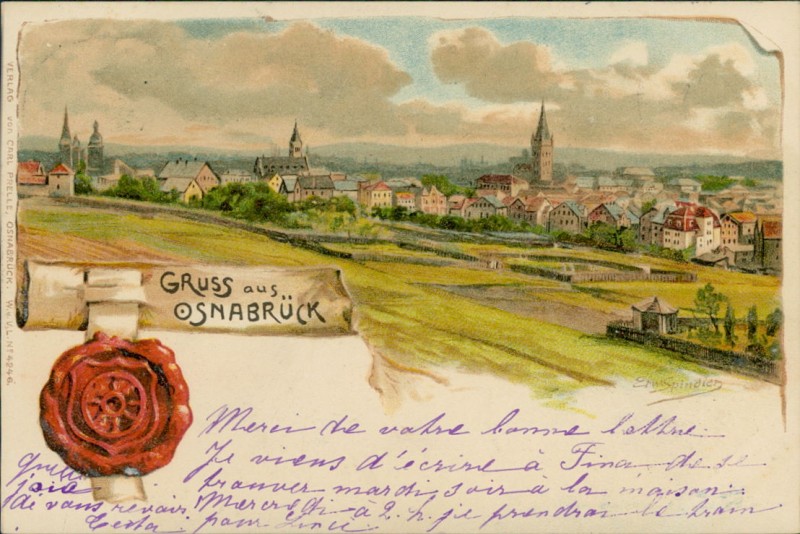 GRUSS aus
OSNABRÜCK
VERLAG von CARL PRELLE, OSNABRÜCK. W.u.L. Nº 4246.
Erw Spindler
Merci de votre bonne lettre.
Je viens d'écrire à Fina de se
trouver mardi soir à la maison.
Mercredi à 2 h. je prendrai le train
pour
quelle
joie
de vous revoir